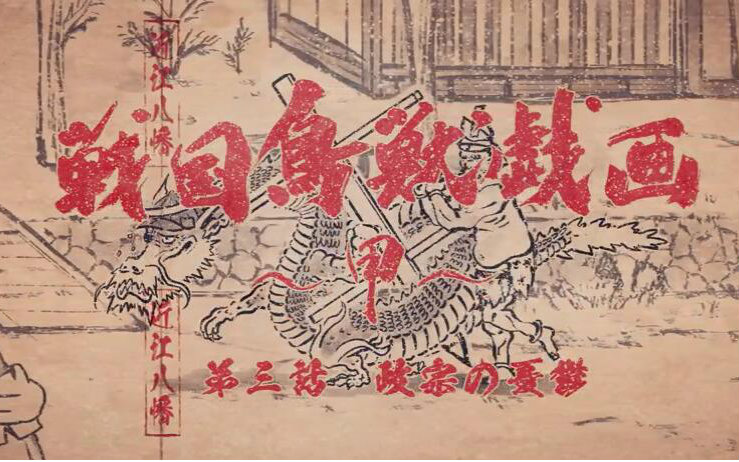 戦国鳥獣戯画
甲
第三話 政宗の憂鬱
近江八幡
近江八幡